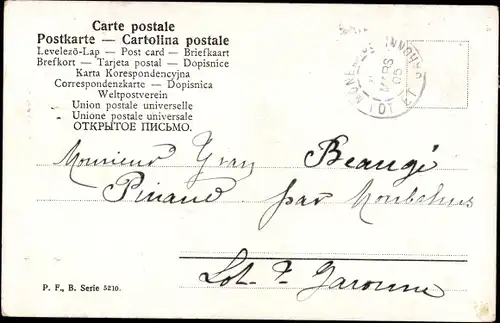 Carte postale
Postkarte — Cartolina postale
Levelezö-Lap — Post card — Briefkaart
Brefkort — Tarjeta postal — Dopisnice
Karta Korespondencyjna
Correspondenzkarte — Dopisnica
Weltpostverein
Union postale universelle
Unione postale universale
ОТКРЫТОЕ ПИСЬМО.
MARS
05
LOT ET
Monsieur Yvan Beaugé
par Monbahus
Lot. & Garonne
P. F., B. Serie 5210.